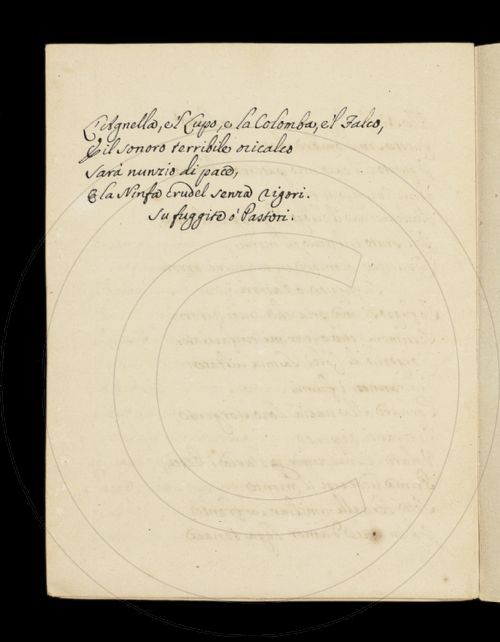 L'Agnella, e'l Lupo, e la Colomba, e'l Falco,
E il sonoro terribile oricalco
Sarà nunzio di pace,
E la Ninfa crudel senza rigori.
Su fuggite ò Pastori.